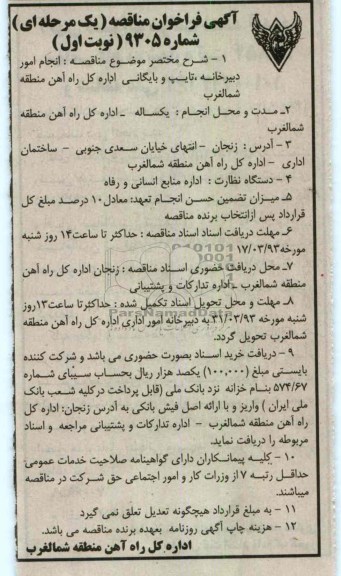 آگهی فراخوان مناقصه (یک مرحله ای)
شماره ۹۳۰۵ (نوبت اول)
۱ – شرح مختصر موضوع مناقصه : انجام امور
دبیرخانه ،تایپ و بایگانی اداره کل راه آهن منطقه
شمالغرب
۲ـ مدت و محل انجام : یکساله ـ اداره کل راه آهن منطقه
شمالغرب
۳ – آدرس : زنجان – انتهای خیابان سعدی جنوبی – ساختمان
اداری – اداره کل راه آهن منطقه شمالغرب
۴ – دستگاه نظارت : اداره منابع انسانی و رفاه
۵ـ میزان تضمین حسن انجام تعهد: معادل ۱۰ درصد مبلغ کل
قرارداد پس ازانتخاب برنده مناقصه
۶ـ مهلت دریافت اسناد اسناد مناقصه : حداکثر تا ساعت۱۴ روز شنبه
مورخه۱۷/۰۳/۹۳
۷ـ محل دریافت حضوری اسناد مناقصه : زنجان اداره کل راه آهن
منطقه شمالغرب ـ اداره تدارکات و پشتیبانی
۸ـ مهلت و محل تحویل اسناد تکمیل شده : حداکثرتا ساعت۱۳روز
شنبه مورخه ۳۱/۰۳/۹۳ به دبیرخانه امور اداری اداره کل راه آهن منطقه
شمالغرب تحویل گردد.
۹ – دریافت خرید اسناد بصورت حضوری می باشد و شرکت کننده
بایستی مبلغ (۱۰۰,۰۰۰) یکصد هزار ریال بحساب سیبای شماره
۵۷۴/۶۷ بنام خزانه نزد بانک ملی (قابل پرداخت درکلیه شعب بانک
ملی ایران ) واریز و با ارائه اصل فیش بانکی به آدرس زنجان: اداره کل
راه آهن منطقه شمالغرب – اداره تدارکات و پشتیبانی مراجعه و اسناد
مربوطه را دریافت نماید.
۱۰ – کلیه پیمانکاران دارای گواهینامه صلاحیت خدمات عمومی
حداقل رتبه ۷ از وزرات کار و امور اجتماعی حق شرکت در مناقصه
میباشند.
۱۱ – به مبلغ قرارداد هیچگونه تعدیل تعلق نمی گیرد
۱۲ – هزینه چاپ آگهی روزنامه بعهده برنده مناقصه می باشد.
اداره کل راه آهن منطقه شمالغرب